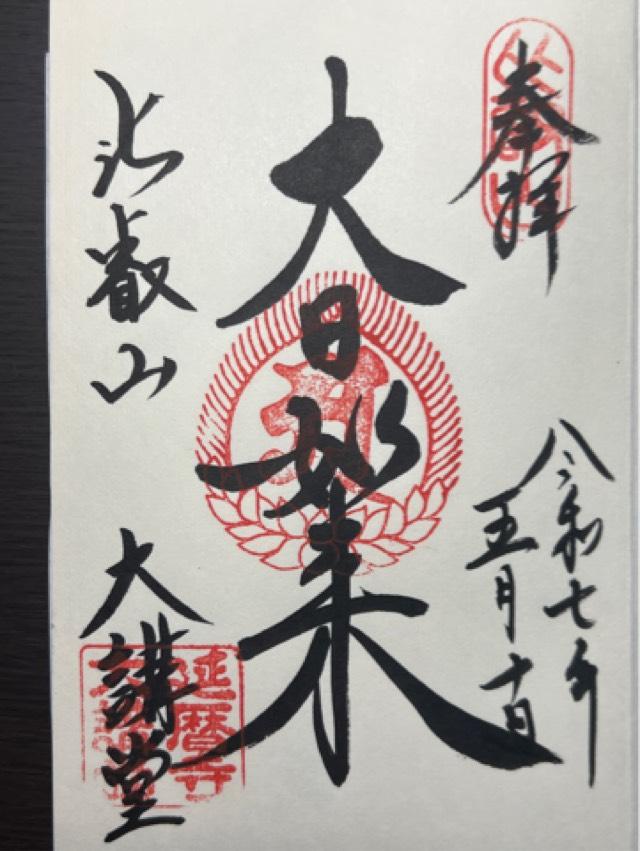 奉拝
令和七年
五月十日
大日如来
比叡山
大講堂
延暦寺